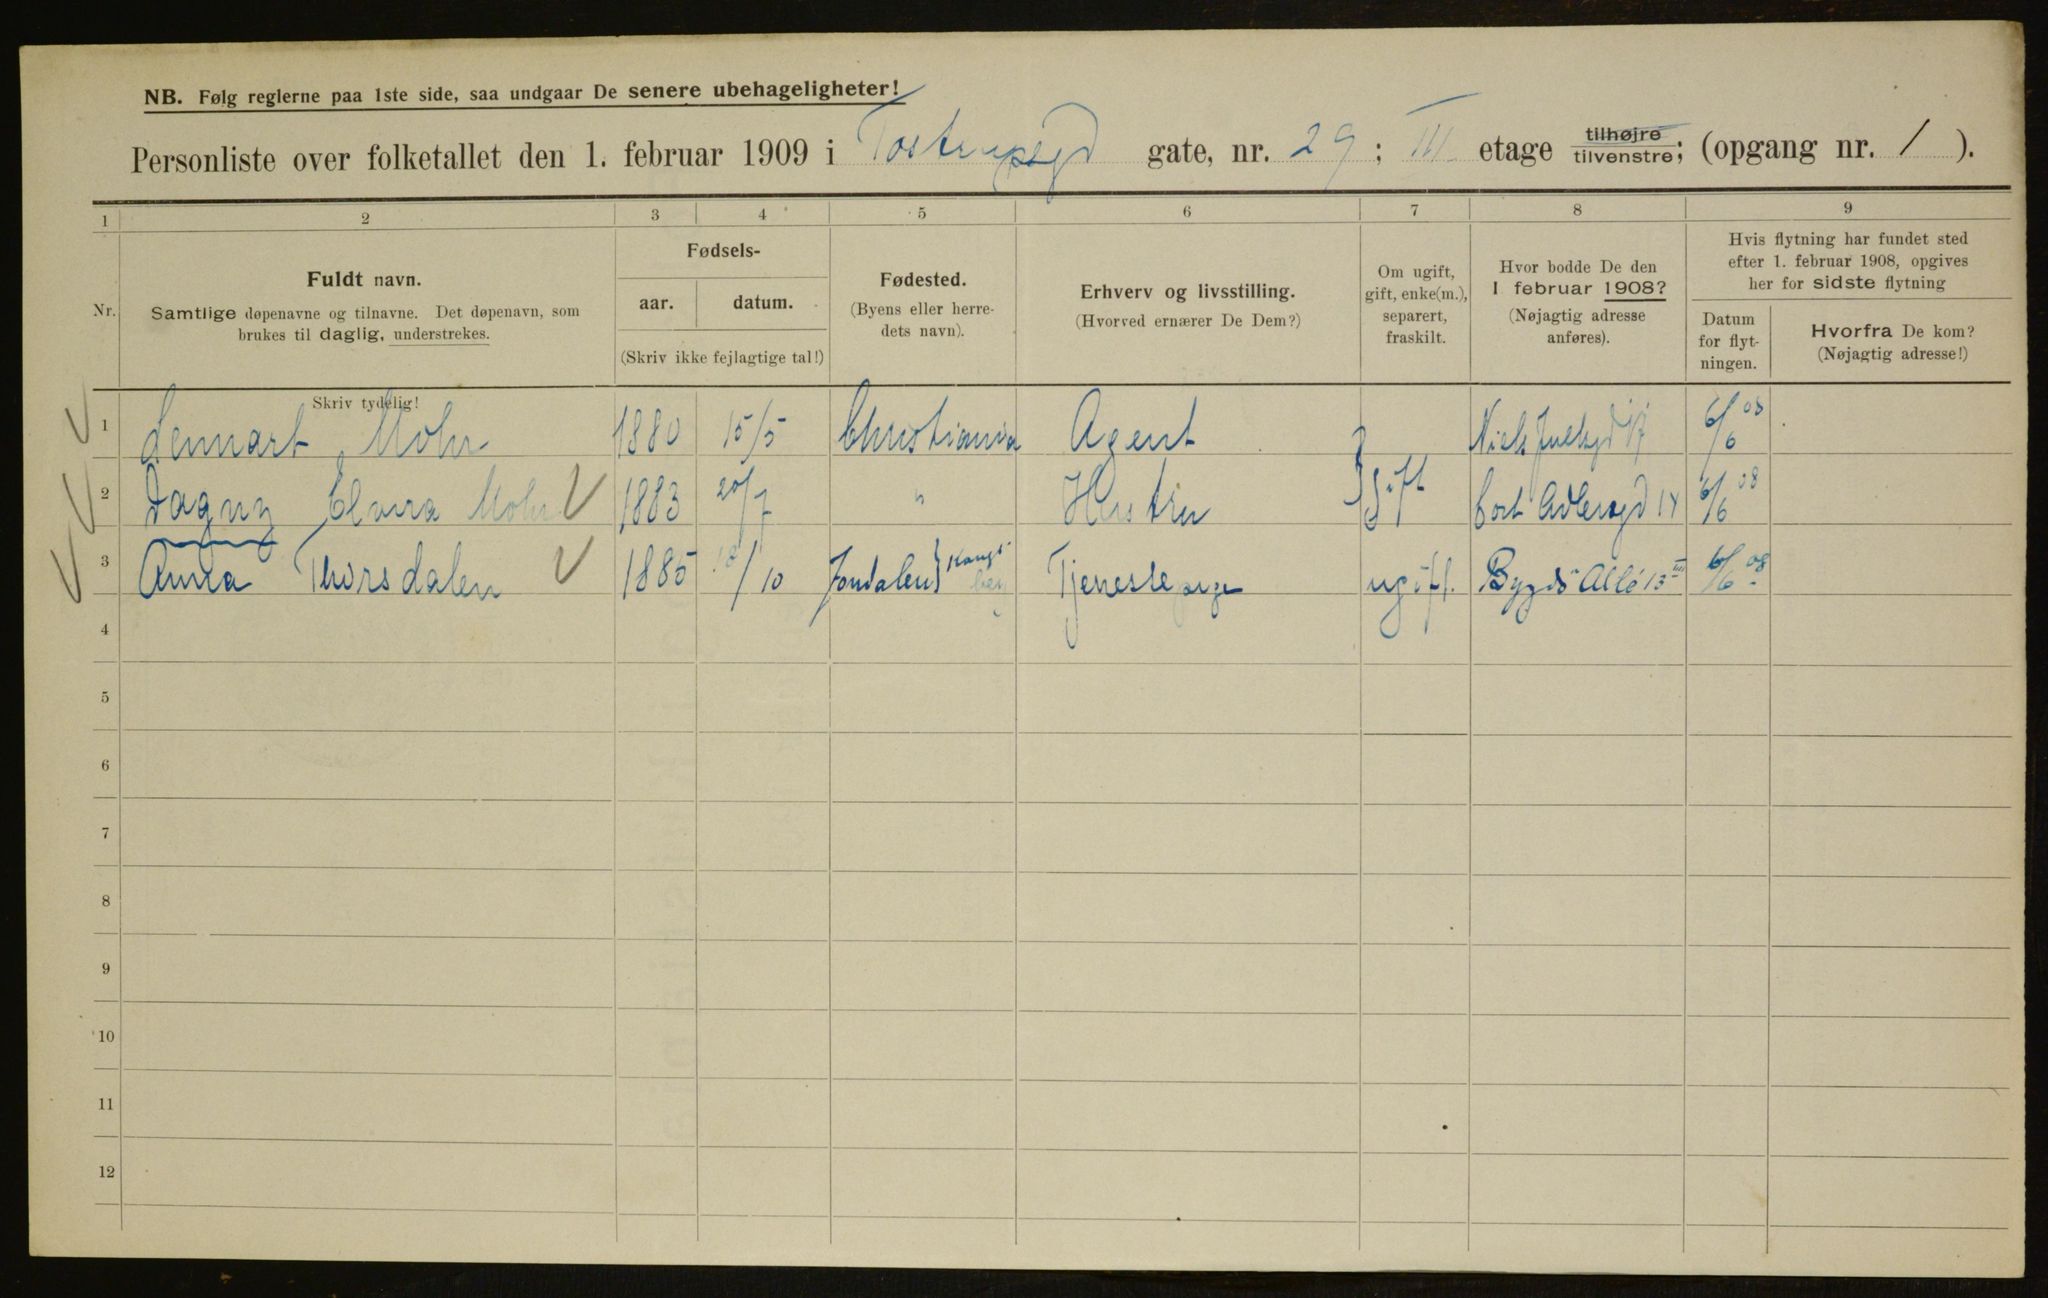 NB. Følg reglerne paa 1ste side, saa undgaar De senere ubehageligheter!
Personliste over folketallet den 1. februar 1909 i Tostrupsgd gate, nr. 29 ; III etage tilhøjre tilvenstre; (opgang nr. 1 ).
1 2 3 4 5 6 7 8 9
Nr.
Fuldt navn.
Samtlige døpenavne og tilnavne. Det døpenavn, som
brukes til daglig, understrekes.
Skriv tydelig!
Fødsels-
aar. datum.
(Skriv ikke fejlagtige tal!)
Fødested.
(Byens eller herre-
dets navn).
Erhverv og livsstilling.
(Hvorved ernærer De Dem?)
Om ugift,
gift, enke(m.),
separert,
fraskilt.
Hvor bodde De den
1 februar 1908?
(Nøjagtig adresse
anføres).
Hvis flytning har fundet sted
efter 1. februar 1908, opgives
her for sidste flytning
Datum
for flyt-
ningen.
Hvorfra De kom?
(Nøjagtig adresse!)
1 Lennart Mohr 1880 15/5 Christiania Agent Niels Juelsgd 17 6/6 08
2 Dagny Elvira Mohr 1883 20/7 " Hustru gift Cort Adlersgd 14 6/6 08
3 Anna Thorsdalen 1885 18/10 Jondalen } Kongsberg Tjenestepige ugift. Bygdö Allé 13 III 6/6 08
4
5
6
7
8
9
10
11
12